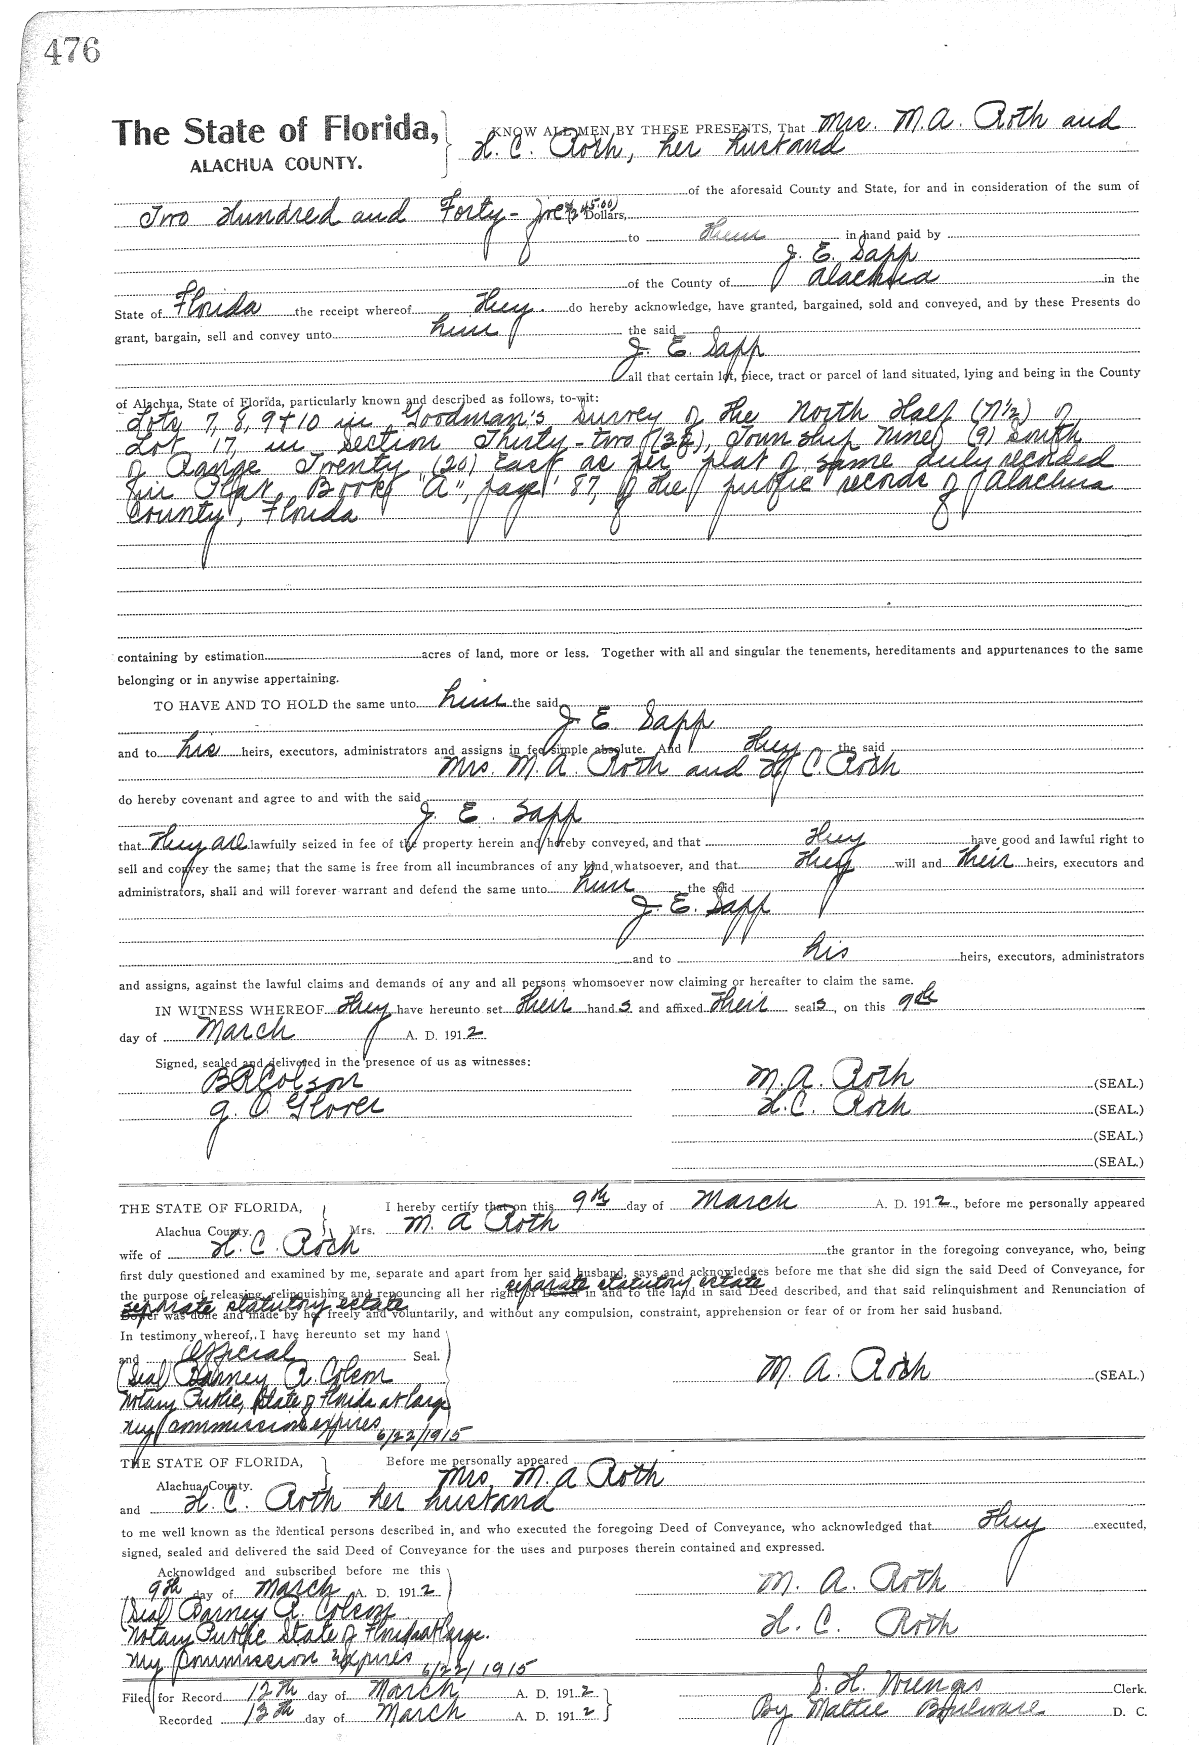 476
The State of Florida, KNOW ALL MEN BY THESE PRESENTS, That Mrs. M.A. Roth and
ALACHUA COUNTY. H. C. Roth, her husband
of the aforesaid County and State, for and in consideration of the sum of
Two Hundred and Forty- Dollars,
to them in hand paid by
J. E. Sapp
of the County of Alachua in the
State of Florida the receipt whereof they do hereby acknowledge, have granted, bargained, sold and conveyed, and by these Presents do
grant, bargain, sell and convey unto him the said
J. E. Sapp
all that certain lot, piece, tract or parcel of land situated, lying and being in the County
of Alachua, State of Florida, particularly known and described as follows, to-wit:
Lots 7, 8, 9 + 10 in Goodman's Survey of the North Half (N½) of
Lot 17 in Section Thirty-two (32), Township Nine (9) South
of Range Twenty (20) East as per plat of same duly recorded
in Plat Book "A", page 87, of the public records of Alachua
County, Florida
containing by estimation acres of land, more or less. Together with all and singular the tenements, hereditaments and appurtenances to the same
belonging or in anywise appertaining.
TO HAVE AND TO HOLD the same unto him the said
J. E. Sapp
and to his heirs, executors, administrators and assigns in fee simple absolute. And they the said
Mrs. M. A. Roth and H. C. Roth
do hereby covenant and agree to and with the said
J. E. Sapp
that they are lawfully seized in fee of the property herein and hereby conveyed, and that they have good and lawful right to
sell and convey the same; that the same is free from all incumbrances of any kind whatsoever, and that they will and their heirs, executors and
administrators, shall and will forever warrant and defend the same unto him the said
J. E. Sapp
and to his heirs, executors, administrators
and assigns, against the lawful claims and demands of any and all persons whomsoever now claiming or hereafter to claim the same.
IN WITNESS WHEREOF they have hereunto set their hands and affixed their seals, on this 9th
day of March A. D. 1912
Signed, sealed and delivered in the presence of us as witnesses:
B R Colson M. A. Roth (SEAL.)
J. O. Glover H. C. Roth (SEAL.)
(SEAL.)
(SEAL.)
THE STATE OF FLORIDA, I hereby certify that on this 9th day of March A. D. 1912, before me personally appeared
Alachua County. Mrs. M. A Roth
wife of H. C. Roth the grantor in the foregoing conveyance, who, being
first duly questioned and examined by me, separate and apart from her said husband, says and acknowledges before me that she did sign the said Deed of Conveyance, for
separate statutory estate
the purpose of releasing, relinquishing and renouncing all her right of Dower in and to the land in said Deed described, and that said relinquishment and Renunciation of
separate statutory estate
Dower was done and made by her freely and voluntarily, and without any compulsion, constraint, apprehension or fear of or from her said husband.
In testimony whereof, I have hereunto set my hand
and official Seal.
(Seal) Barney R. Colson M. A. Roth (SEAL.)
Notary Public, State of Florida at large
My commission expires 6/22/1915
THE STATE OF FLORIDA, Before me personally appeared
Alachua County. Mrs. M. A Roth
and H. C. Roth her husband
to me well known as the identical persons described in, and who executed the foregoing Deed of Conveyance, who acknowledged that they executed,
signed, sealed and delivered the said Deed of Conveyance for the uses and purposes therein contained and expressed.
Acknowldged and subscribed before me this
9th day of March A. D. 1912 M. A. Roth
(Seal) Barney R. Colson H. C. Roth
Notary Public State of Florida at large.
My Commission Expires 6/22/1915
Filed for Record 12th day of March A. D. 1912 S. H. Wienges Clerk.
Recorded 13th day of March A. D. 1912 By Mattie Boulware D. C.